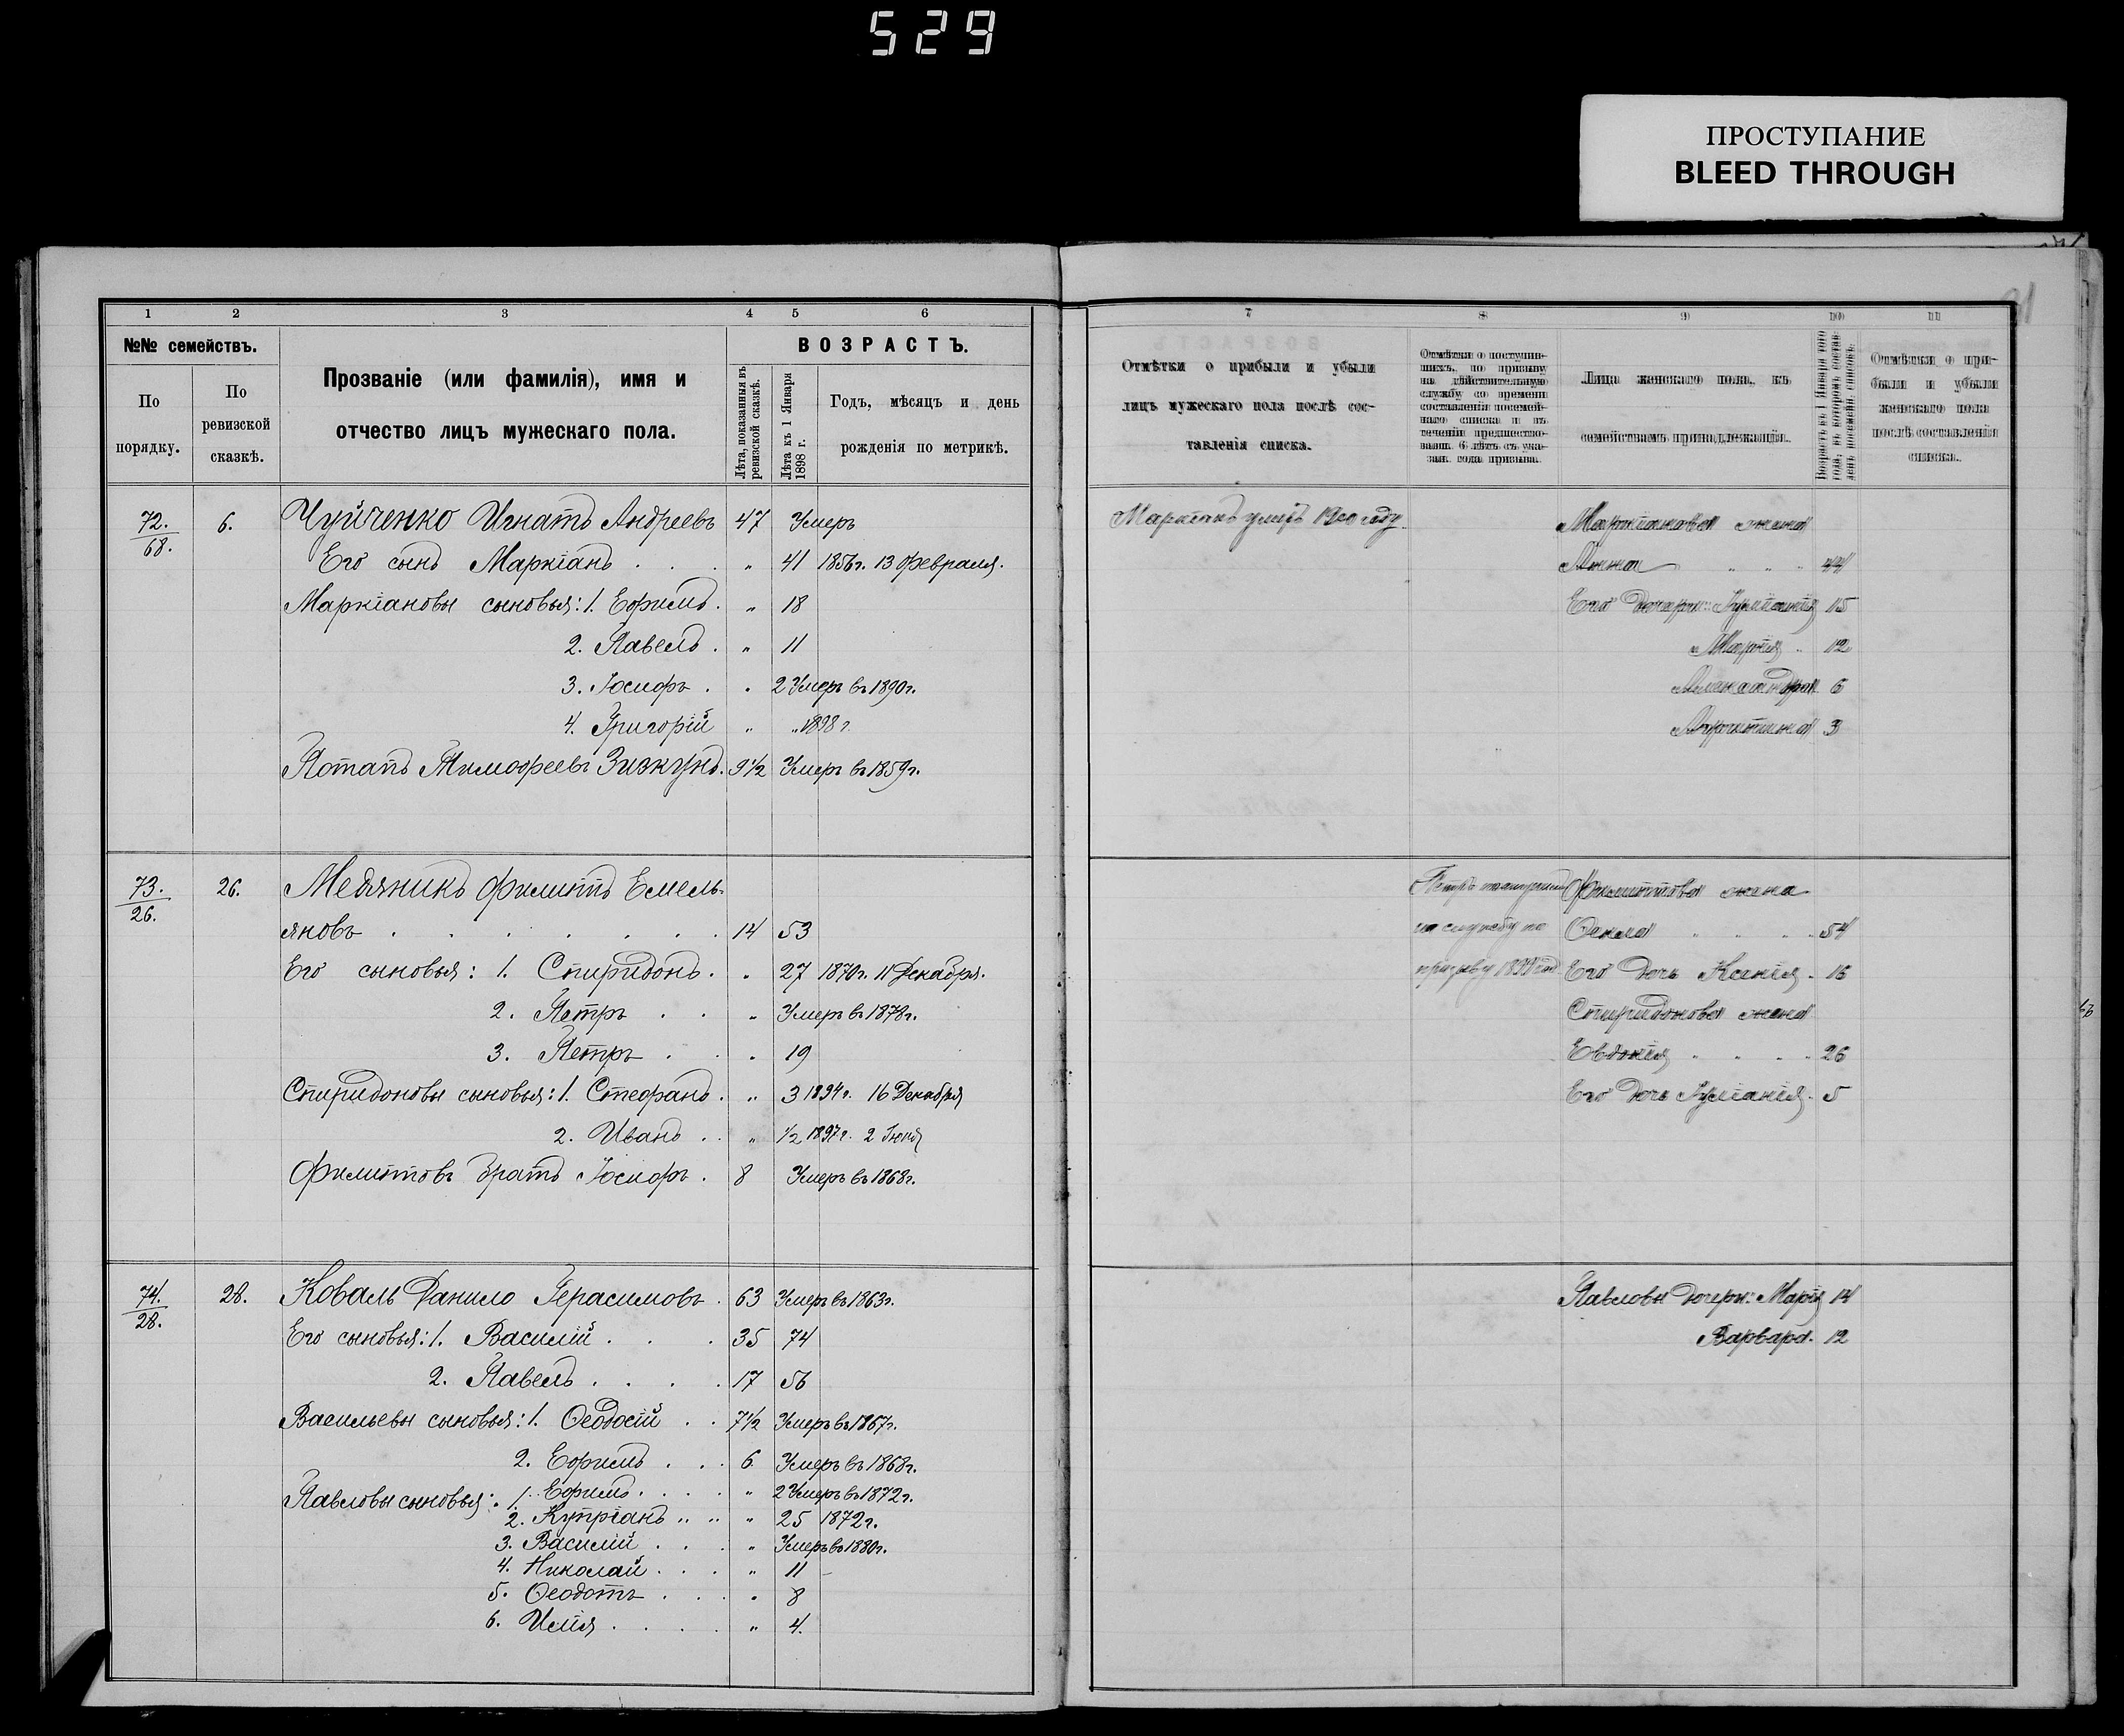 529
ПРОСТУПАНИЕ
BLEED THROUGH
1 2 3 4 5 6
№№ семействъ.
По порядку.
По ревизской сказкѣ.
Прозваніе (или фамилія), имя и
отчество лицъ мужескаго пола.
ВОЗРАСТЪ.
Лѣта, показанныя въ ревизской сказкѣ.
Лѣта къ 1 Января 1898 г.
Годъ, мѣсяцъ и день
рожденія по метрикѣ.
72. 68. 6. Чуйченко Игнатъ Андреевъ 47 Умеръ
Его сынъ Маркіанъ . . . " 41 1856г. 13 февраля.
Маркіановы сыновья: 1. Ефимъ. " 18
2. Павелъ . " 11
3. Іосифъ . " 2 Умеръ въ 1890г.
4. Григорій " " 1898 г.
Потапъ Тимофеевъ 9½ Умеръ въ 1859г.
73. 26. 26. Медяникъ Филиппъ Емель-
яновъ . . . . . . . 14 53
Его сыновья: 1. Спиридонъ. " 27 1870г. 11 Декабря.
2. Петръ . . " Умеръ въ 1878г.
3. Петръ . . " 19
Спиридоновы сыновья: 1. Стефанъ. " 3 1894г. 16 Декабря
2. Иванъ . . " ½ 1897г. 2 Іюня
Филиповъ братъ Іосифъ . 8 Умеръ въ 1868г.
74. 28. 28. Коваль Данило Герасимовъ . 63 Умеръ въ 1863г.
Его сыновья: 1. Василій . . . 35 74
2. Павелъ . . . . 17 56
Васильевы сыновья: 1. Ѳеодосій . . 7½ Умеръ въ 1867г.
2. Ефимъ . . . 6 Умеръ въ 1868г.
Павловы сыновья: 1. Ефимъ . . . . " 2 Умеръ въ 1872г.
2. Купріанъ " " " 25 1872г.
3. Василій . . . " Умеръ въ 1880г.
4. Николай . . . " 11 -
5. Ѳеодотъ . . . " 8
6. Илія . . . . " 4.
7 8 9 10 11
Отмѣтки о прибыли и убыли
лицъ мужескаго пола послѣ сос-
тавленія списка.
Отмѣтки о поступив-
шихъ, по призыву
на дѣйствительную
службу со времени
составленія посемей-
наго списка и въ
теченіи предшество-
вавш. 6 лѣтъ съ ука-
зан. года призыва.
Лица женскаго пола, къ
семействамъ принадлежащія.
Отмѣтки о при-
были и убыли
женскаго пола
послѣ составленія
списка.
Маркіанъ умеръ 1900 году. Маркіанова жена
Анна " " " 44
Его дочери: Іуліанія 15
Марія " 12
Александра 6
3
Петръ поступилъ Филиппова жена
на службу по " " " " 54
призыву 1899 год. Его дочь Ксенія . 16
Спиридонова жена
Евдокія " " " " 26
Его дочь Іуліанія . 5
Павловы дочери: Марія 14
Варвара. 12